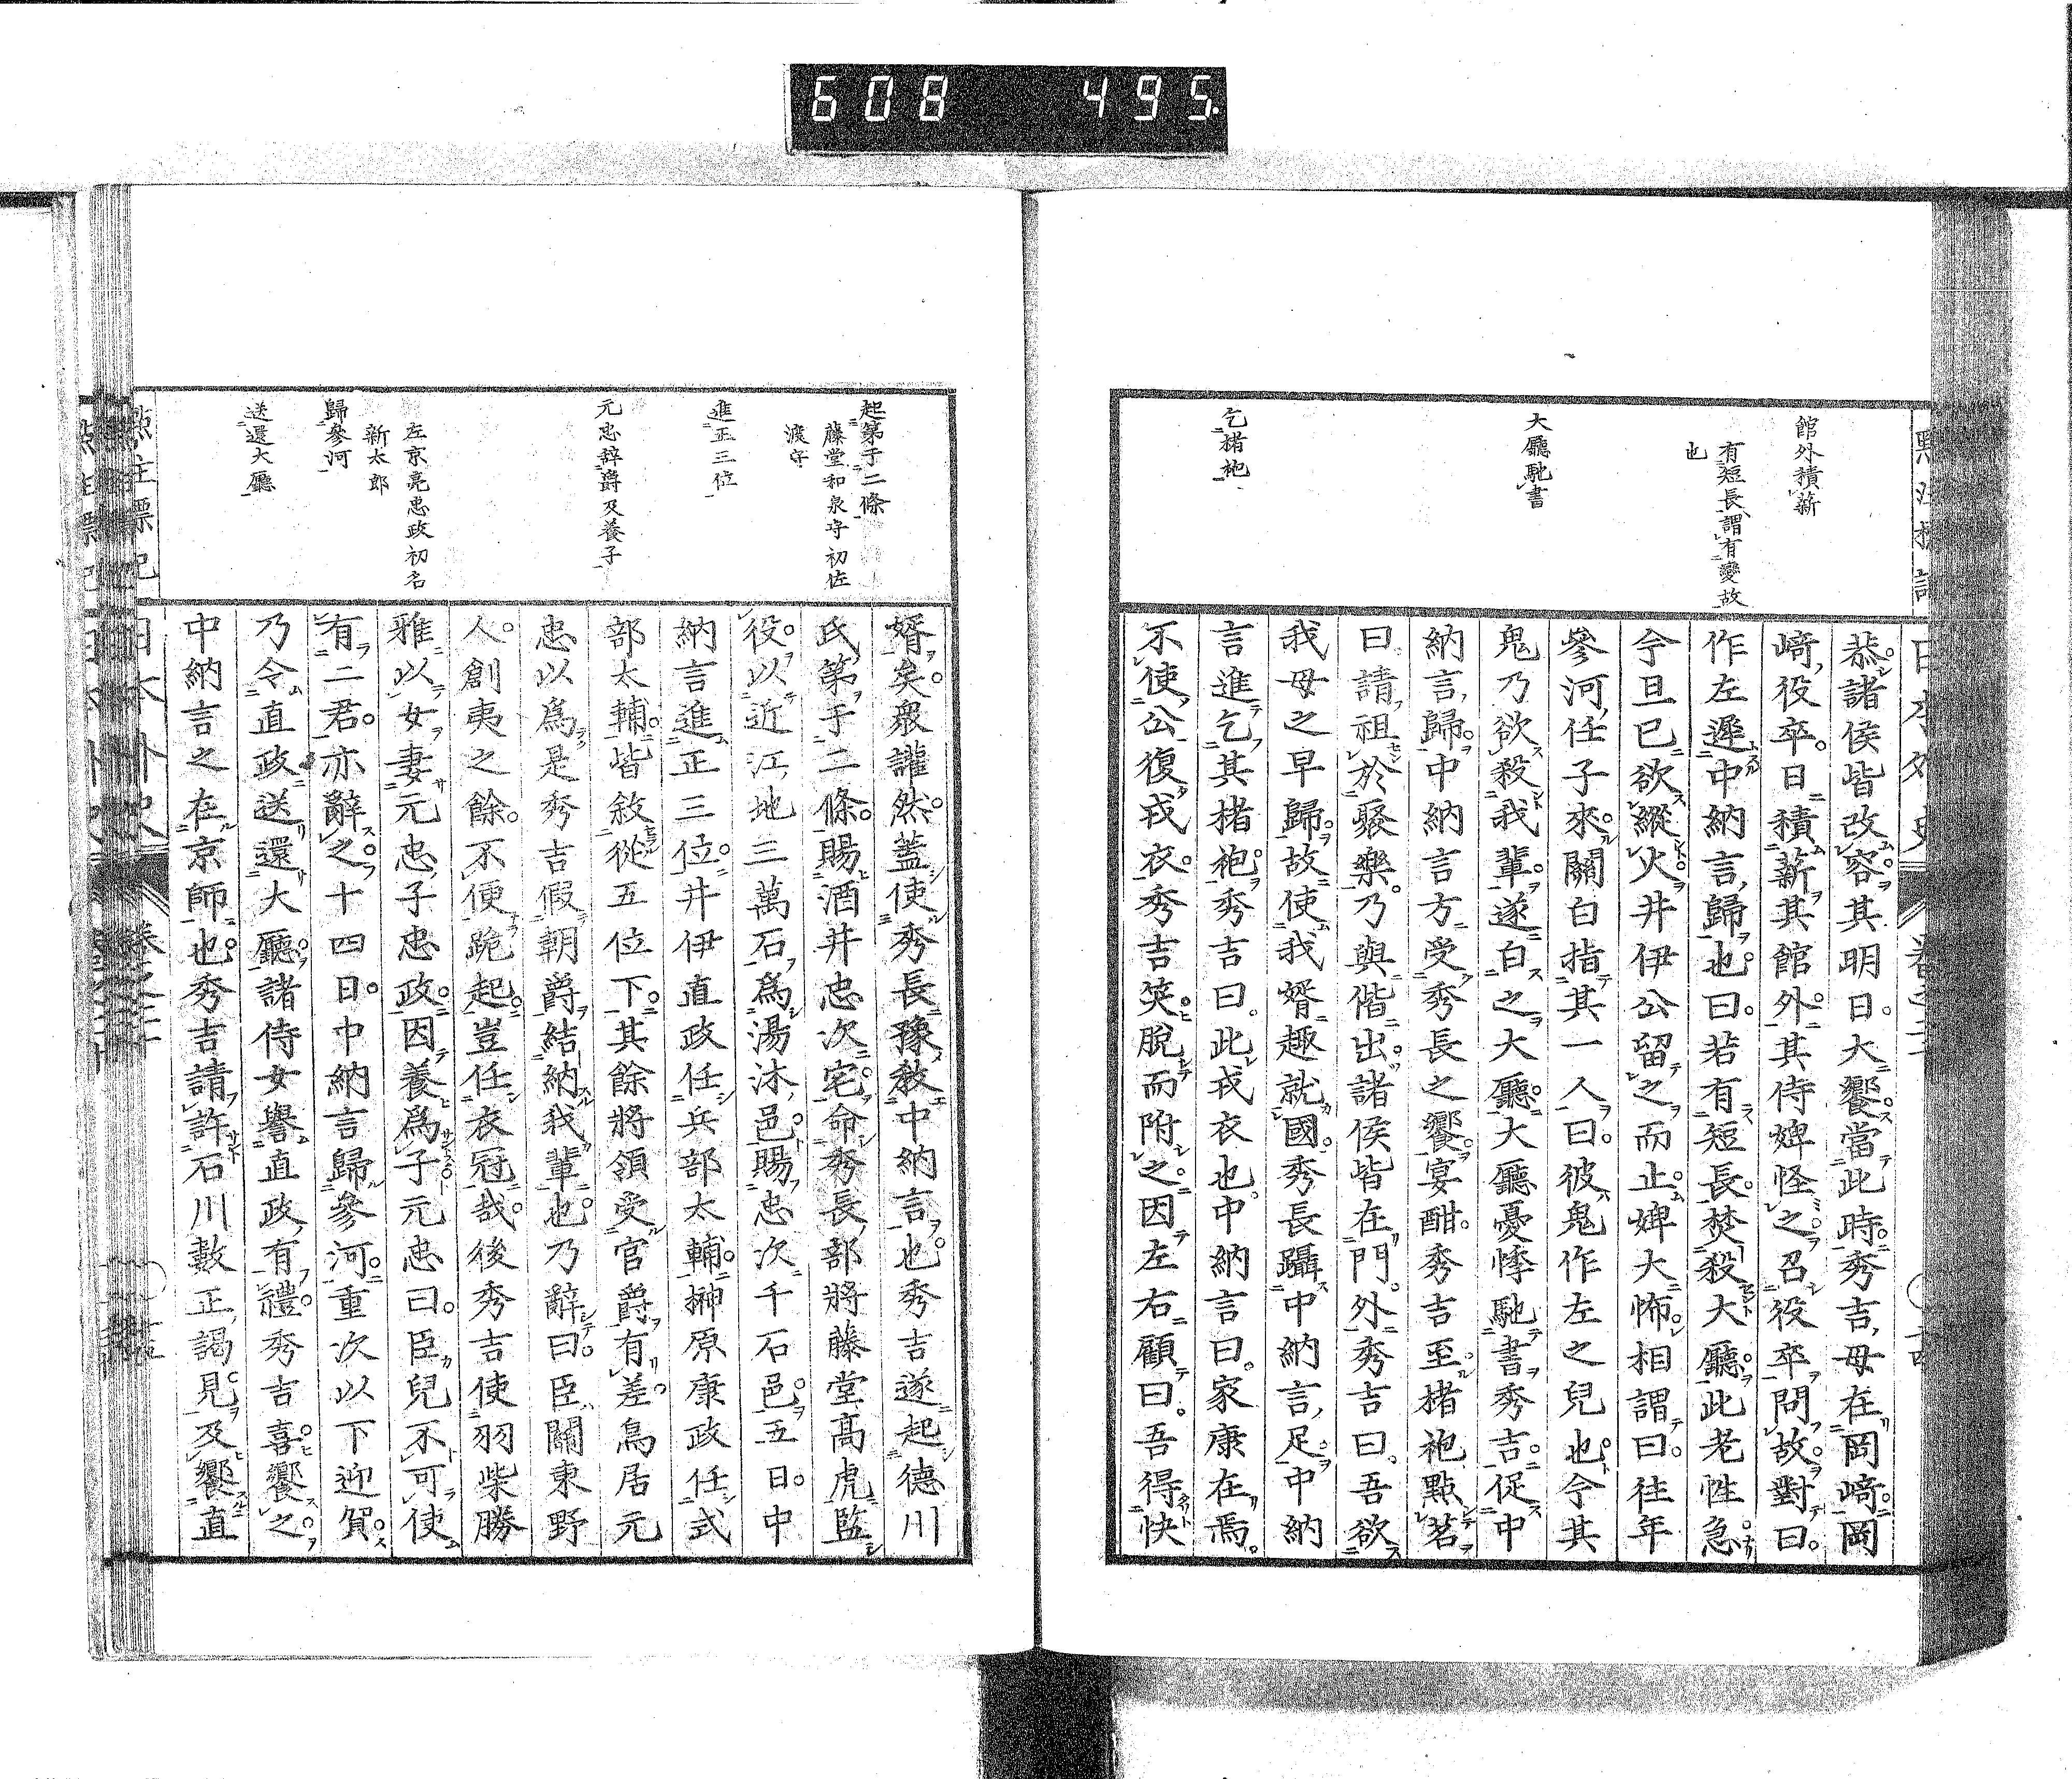 608 495
館外積薪
有短長謂有變故
也
大廳馳書
乞楮袍
恭諸侯皆改容其明日大饗當此時秀吉母在岡﨑岡
﨑役卒日積薪其館外其侍婢怪之召役卒問故對曰
作左遲中納言歸也曰若有短長焚殺大廳此老性急
今旦已欲縱火井伊公留之而止婢大怖相謂曰往年
參河任子來關白指其一人曰彼鬼作左之兒也今其
鬼乃欲殺我輩遂白之大廳大廳憂悸馳書秀吉促中
納言歸中納言方受秀長之饗宴酣秀吉至楮袍點茗
曰請祖於聚樂乃與偕出諸侯皆在門外秀吉曰吾欲
我母之早歸故使我婿趣就國秀長躡中納言足中納
言進乞其楮袍秀吉曰此戎衣也中納言曰家康在焉
不使公復戎衣秀吉笑脫而附之因左右顧曰吾得快
起第于二條
藤堂和泉守初佐
渡守
進正三位
元忠辭爵及養子
左京亮忠政初名
新太郎
歸參河
送還大廳
婿矣衆讙然蓋使秀長豫敎中納言也秀吉遂起德川
氏第于二條賜酒井忠次宅命秀長部將藤堂高虎監
役以近江地三萬石爲湯沐邑賜忠次千石邑五日中
納言進正三位井伊直政任兵部太輔榊原康政任式
部太輔皆敘從五位下其餘將領受官爵有差鳥居元
忠以爲是秀吉假朝爵結納我輩也乃辭曰臣關東野
人創夷之餘不便跪起豈任衣冠哉後秀吉使羽柴勝
雅以女妻元忠子忠政因養爲子元忠曰臣兒不可使
有二君亦辭之十四日中納言歸參河重次以下迎賀
乃令直政送還大廳諸侍女譽直政有禮秀吉喜饗之
中納言之在京師也秀吉請許石川數正謁見及饗直